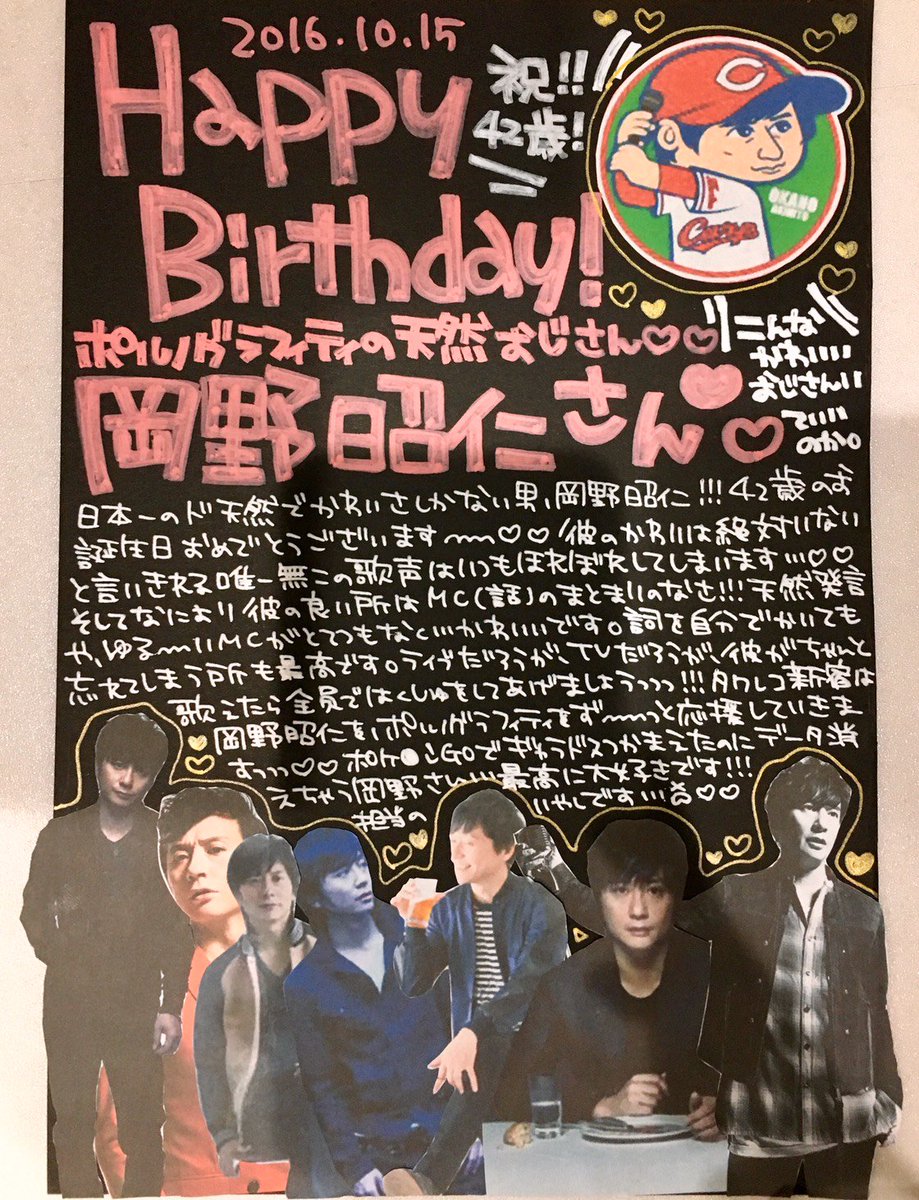 2016.10.15
Happy
Birthday!
祝!!
42歳!
C
OKANO
AKIHITO
Carp
ポルノグラフィティの天然おじさん♡♡
岡野昭仁さん♥♡
こんな
かわいい
おじさんい
ていい
のか。
日本一のド天然でかわいさしかない男、岡野昭仁!!!42歳のお
誕生日おめでとうございます〜〜♡♡彼のかわりは絶対いない
と言いきれる唯一無二の歌声はいつもほれぼれしてしまいます…♡♡
そしてなにより彼の良い所はMC(話)のまとまりのなさ!!!天然発言
や、ゆる〜〜いMCがとてつもなくかわいいです。詞を自分でかいても
忘れてしまう所も最高です。ライブだろうが、TVだろうが、彼がちゃんと
歌えたら全員ではくしゅをしてあげましょうっっっ!!!タワレコ新宿は
岡野昭仁を、ポルノグラフィティをず〜〜っと応援していきま
すっっっ♡♡ポケ●ンGOでギャラドスつかまえたのにデータ消
えちゃう岡野さんが最高に大好きです!!!
担当の いやしです…♡♡